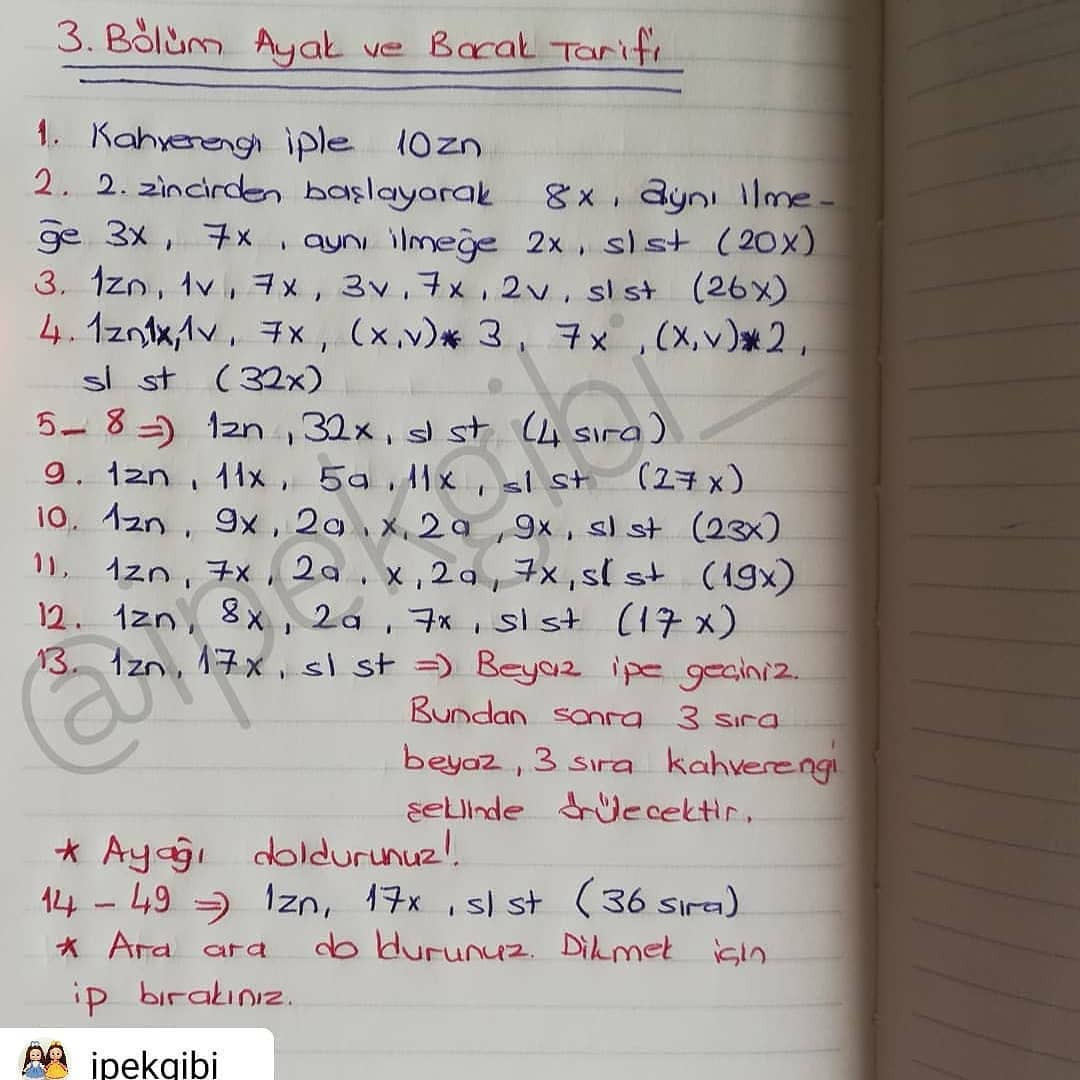 3. Bölüm Ayak ve Bacak Tarifi
1. Kahverengi iple 10zn
2. 2. zincirden başlayarak 8x, aynı ilme-
ğe 3x, 7x, aynı ilmeğe 2x, sl st (20x)
3. 1zn, 1v, 7x, 3v, 7x, 2v, sl st (26x)
4. 1zn,1x,1v, 7x, (x,v)* 3, 7x, (x,v)*2,
sl st (32x)
5-8 ⇒ 1zn, 32x, sl st (4 sıra)
9. 1zn, 11x, 5a, 11x, sl st (27x)
10. 1zn, 9x, 2a, x, 2a, 9x, sl st (23x)
11. 1zn, 7x, 2a, x, 2a, 7x, sl st (19x)
12. 1zn, 8x, 2a, 7x, sl st (17x)
13. 1zn, 17x, sl st ⇒ Beyaz ipe geçiniz.
Bundan sonra 3 sıra
beyaz, 3 sıra kahverengi
şeklinde örülecektir.
* Ayağı doldurunuz!
14 - 49 ⇒ 1zn, 17x, sl st (36 sıra)
* Ara ara doldurunuz. Dikmek için
ip bırakınız.
@ipekgibi_
ipekgibi